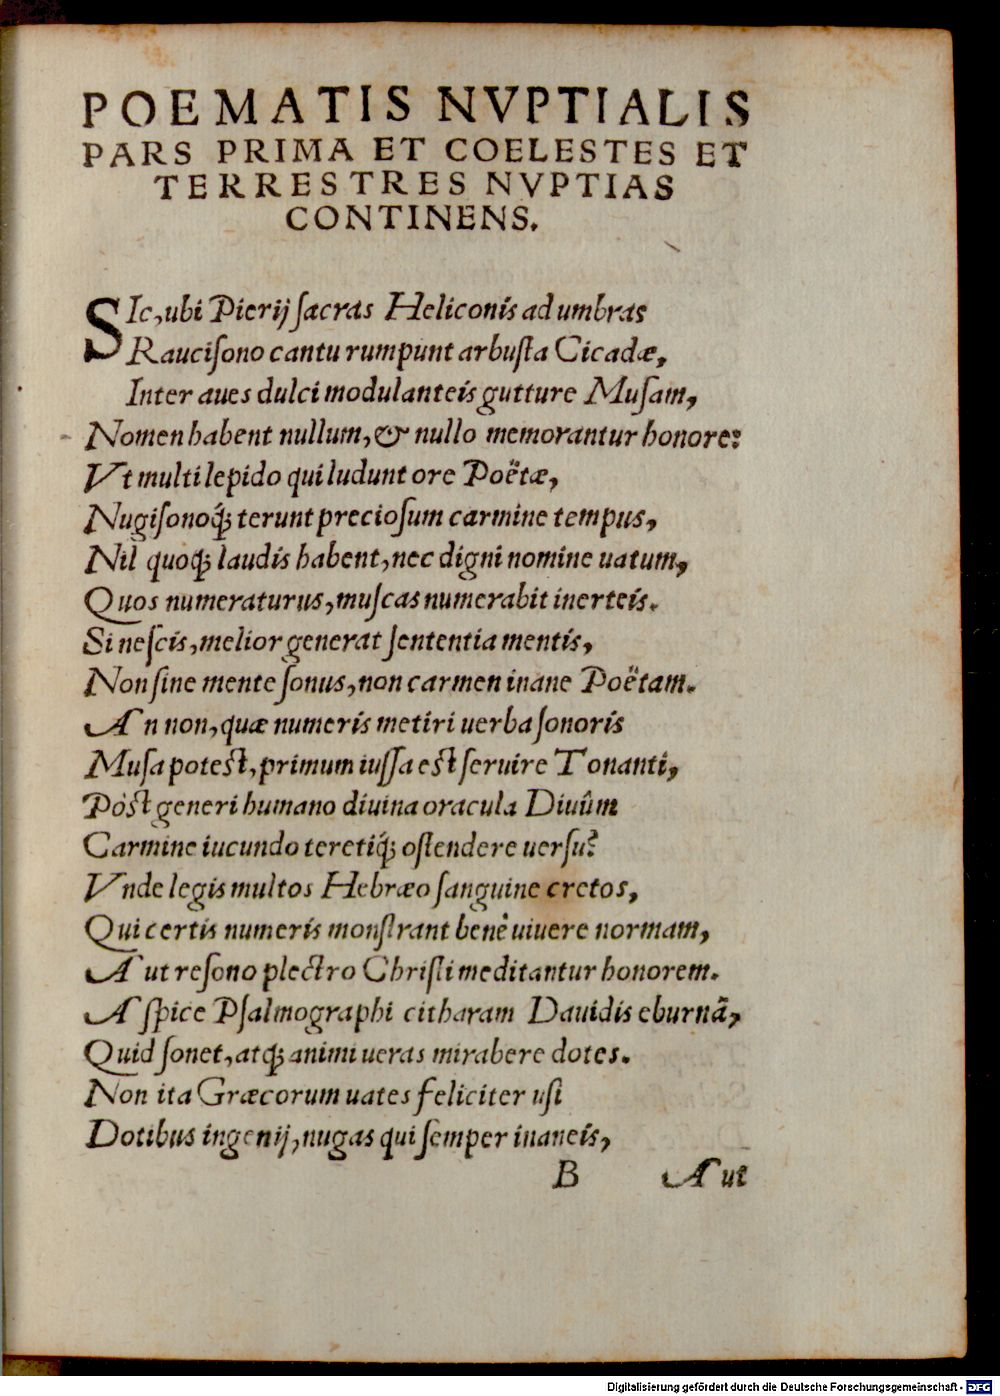 POEMATIS NVPTIALIS
PARS PRIMA ET COELESTES ET
TERRESTRES NVPTIAS
CONTINENS.
SIc, ubi Pierij ſacras Heliconis ad umbras
Rauciſono cantu rumpunt arbuſta Cicadæ,
Inter aues dulci modulanteis gutture Muſam,
Nomen habent nullum, & nullo memorantur honore:
Vt multi lepido qui ludunt ore Poëtæ,
Nugiſonoq́ꝫ terunt precioſum carmine tempus,
Nil quoqꝫ laudis habent, nec digni nomine uatum,
Quos numeraturus, muſcas numerabit inerteis.
Si neſcis, melior generat ſententia mentis,
Non ſine mente ſonus, non carmen inane Poëtam.
An non, quæ numeris metiri uerba ſonoris
Muſa poteſt, primum iuſſa eſt ſeruire Tonanti,
Pòſt generi humano diuina oracula Diuûm
Carmine iucundo teretiq́ꝫ oſtendere uerſu?
Vnde legis multos Hebræo ſanguine cretos,
Qui certis numeris monſtrant benè uiuere normam,
Aut reſono plectro Chriſti meditantur honorem.
Aſpice Pſalmographi citharam Dauidis eburnã,
Quid ſonet, atqꝫ animi ueras mirabere dotes.
Non ita Græcorum uates feliciter uſi
Dotibus ingenij, nugas qui ſemper inaneis,
B Aut
Digitalisierung gefördert durch die Deutsche Forschungsgemeinschaft - DFG